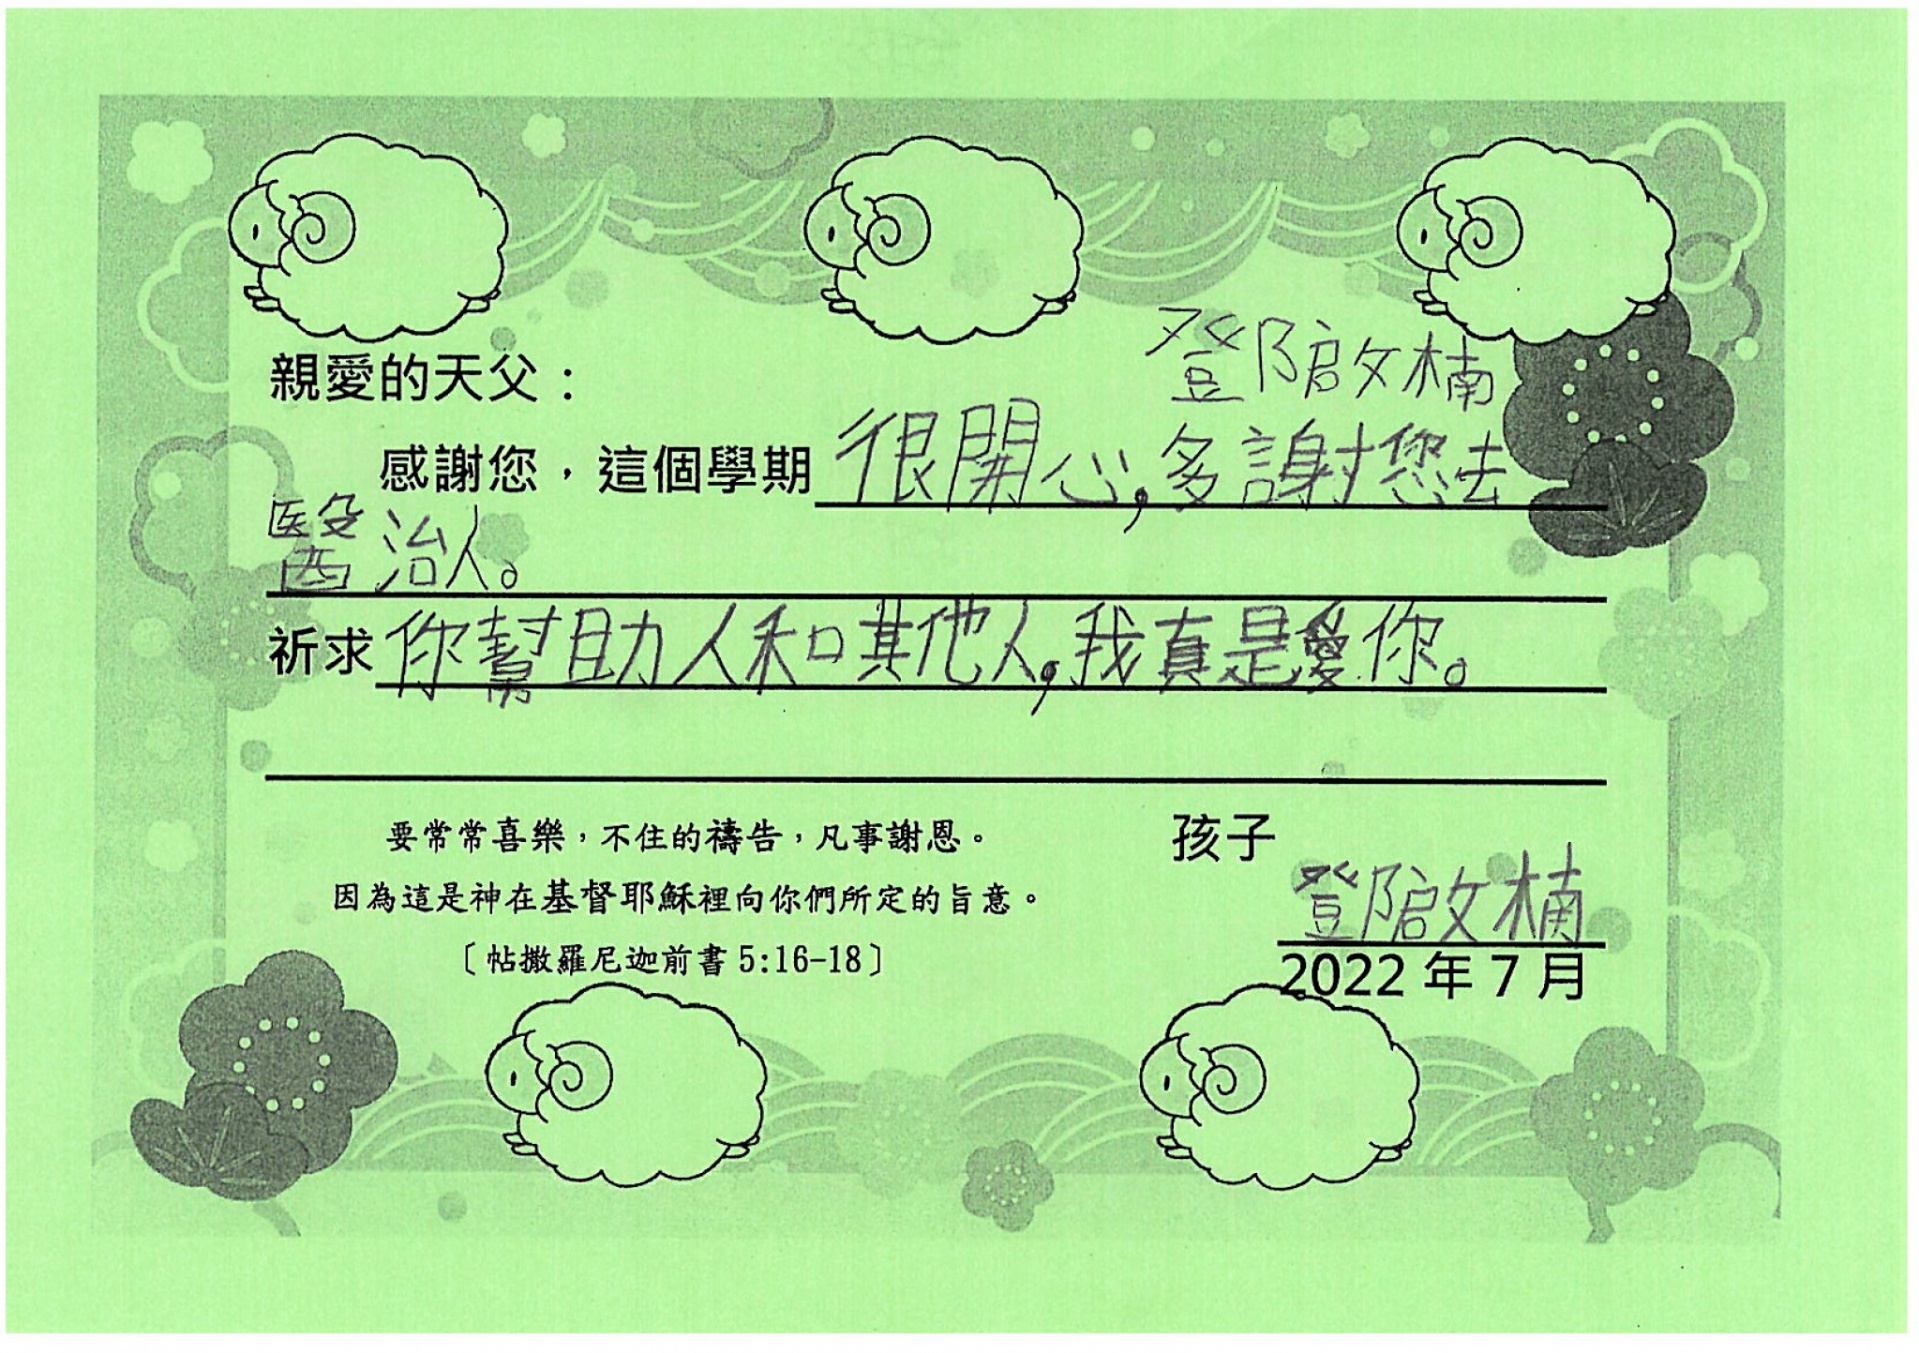 鄧啟楠
親愛的天父：
感謝您，這個學期很開心，多謝您去
醫治人。
祈求你幫助人和其他人，我真是愛你。
要常常喜樂，不住的禱告，凡事謝恩。
因為這是神在基督耶穌裡向你們所定的旨意。
〔帖撒羅尼迦前書 5:16-18〕
孩子
鄧啟楠
2022 年 7 月